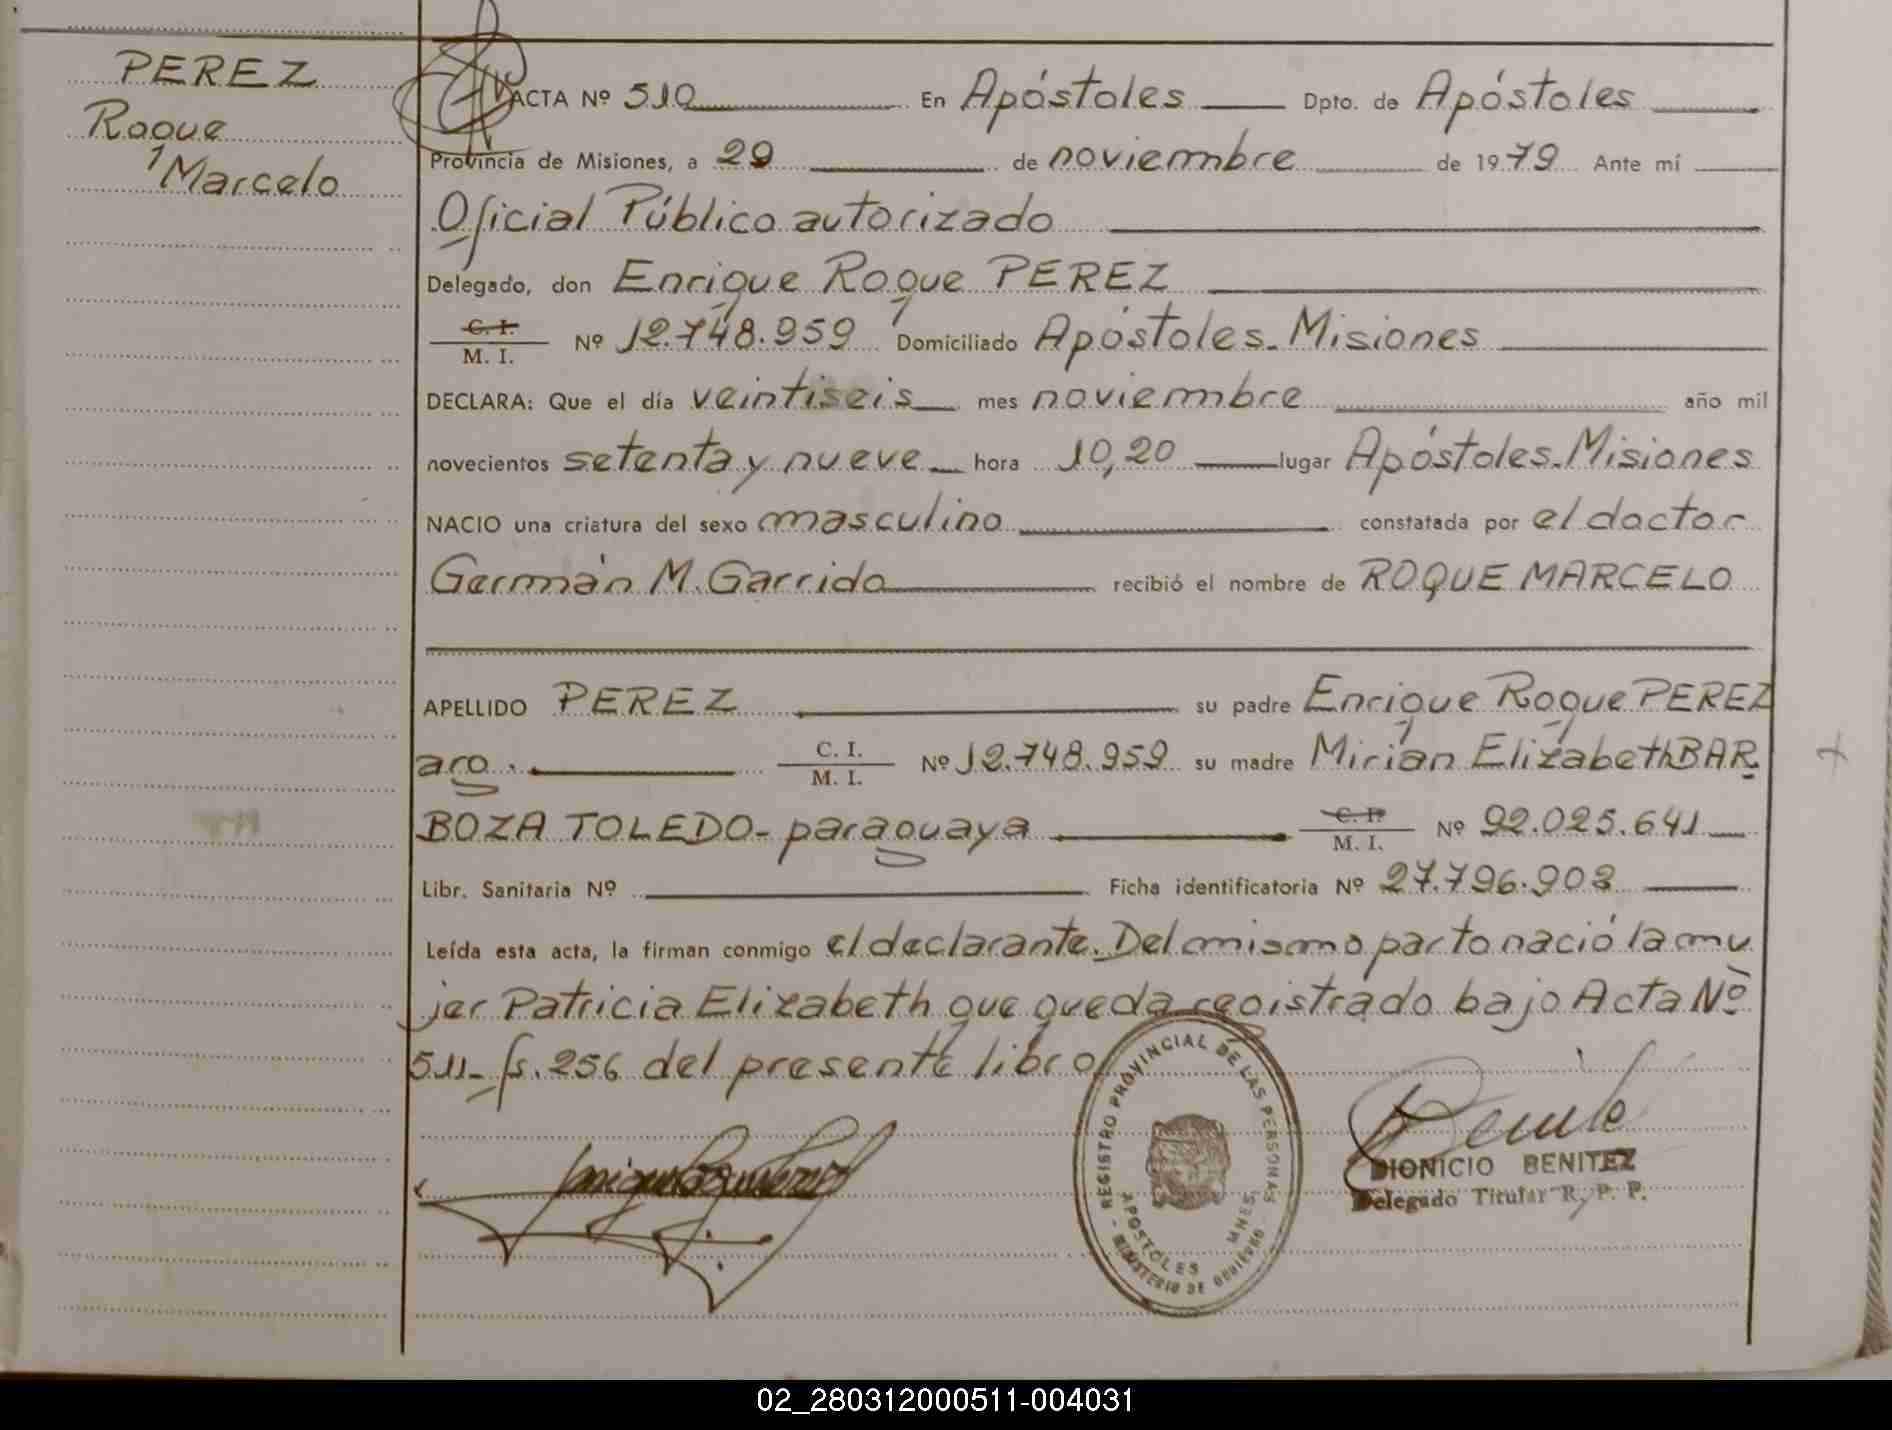 PEREZ
Roque
Marcelo
ACTA Nº 510 En Apóstoles Dpto. de Apóstoles
Provincia de Misiones, a 29 de noviembre de 1979 Ante mí
Oficial Público autorizado
Delegado, don Enrique Roque PEREZ
C. I.
M. I. Nº 12.748.959 Domiciliado Apóstoles-Misiones
DECLARA: Que el día veintiseis mes noviembre año mil
novecientos setenta y nueve hora 10,20 lugar Apóstoles-Misiones
NACIO una criatura del sexo masculino constatada por el doctor
Germán M. Garrido recibió el nombre de ROQUE MARCELO
APELLIDO PEREZ su padre Enrique Roque PEREZ
arg. C. I.
M. I. Nº 12.748.959 su madre Mirian Elizabeth BAR
BOZA TOLEDO- paraguaya C. I.
M. I. Nº 92.025.641
Libr. Sanitaria Nº Ficha identificatoria Nº 27.796.908
Leída esta acta, la firman conmigo el declarante. Del mismo parto nació la mu
jer Patricia Elizabeth que queda registrado bajo Acta Nº
511- fs. 256 del presente libro
REGISTRO PROVINCIAL DE LAS PERSONAS
APOSTOLES MNES
MINISTERIO DE GOBIERNO
DIONICIO BENITEZ
Delegado Titular R. P. P.
02_280312000511-004031